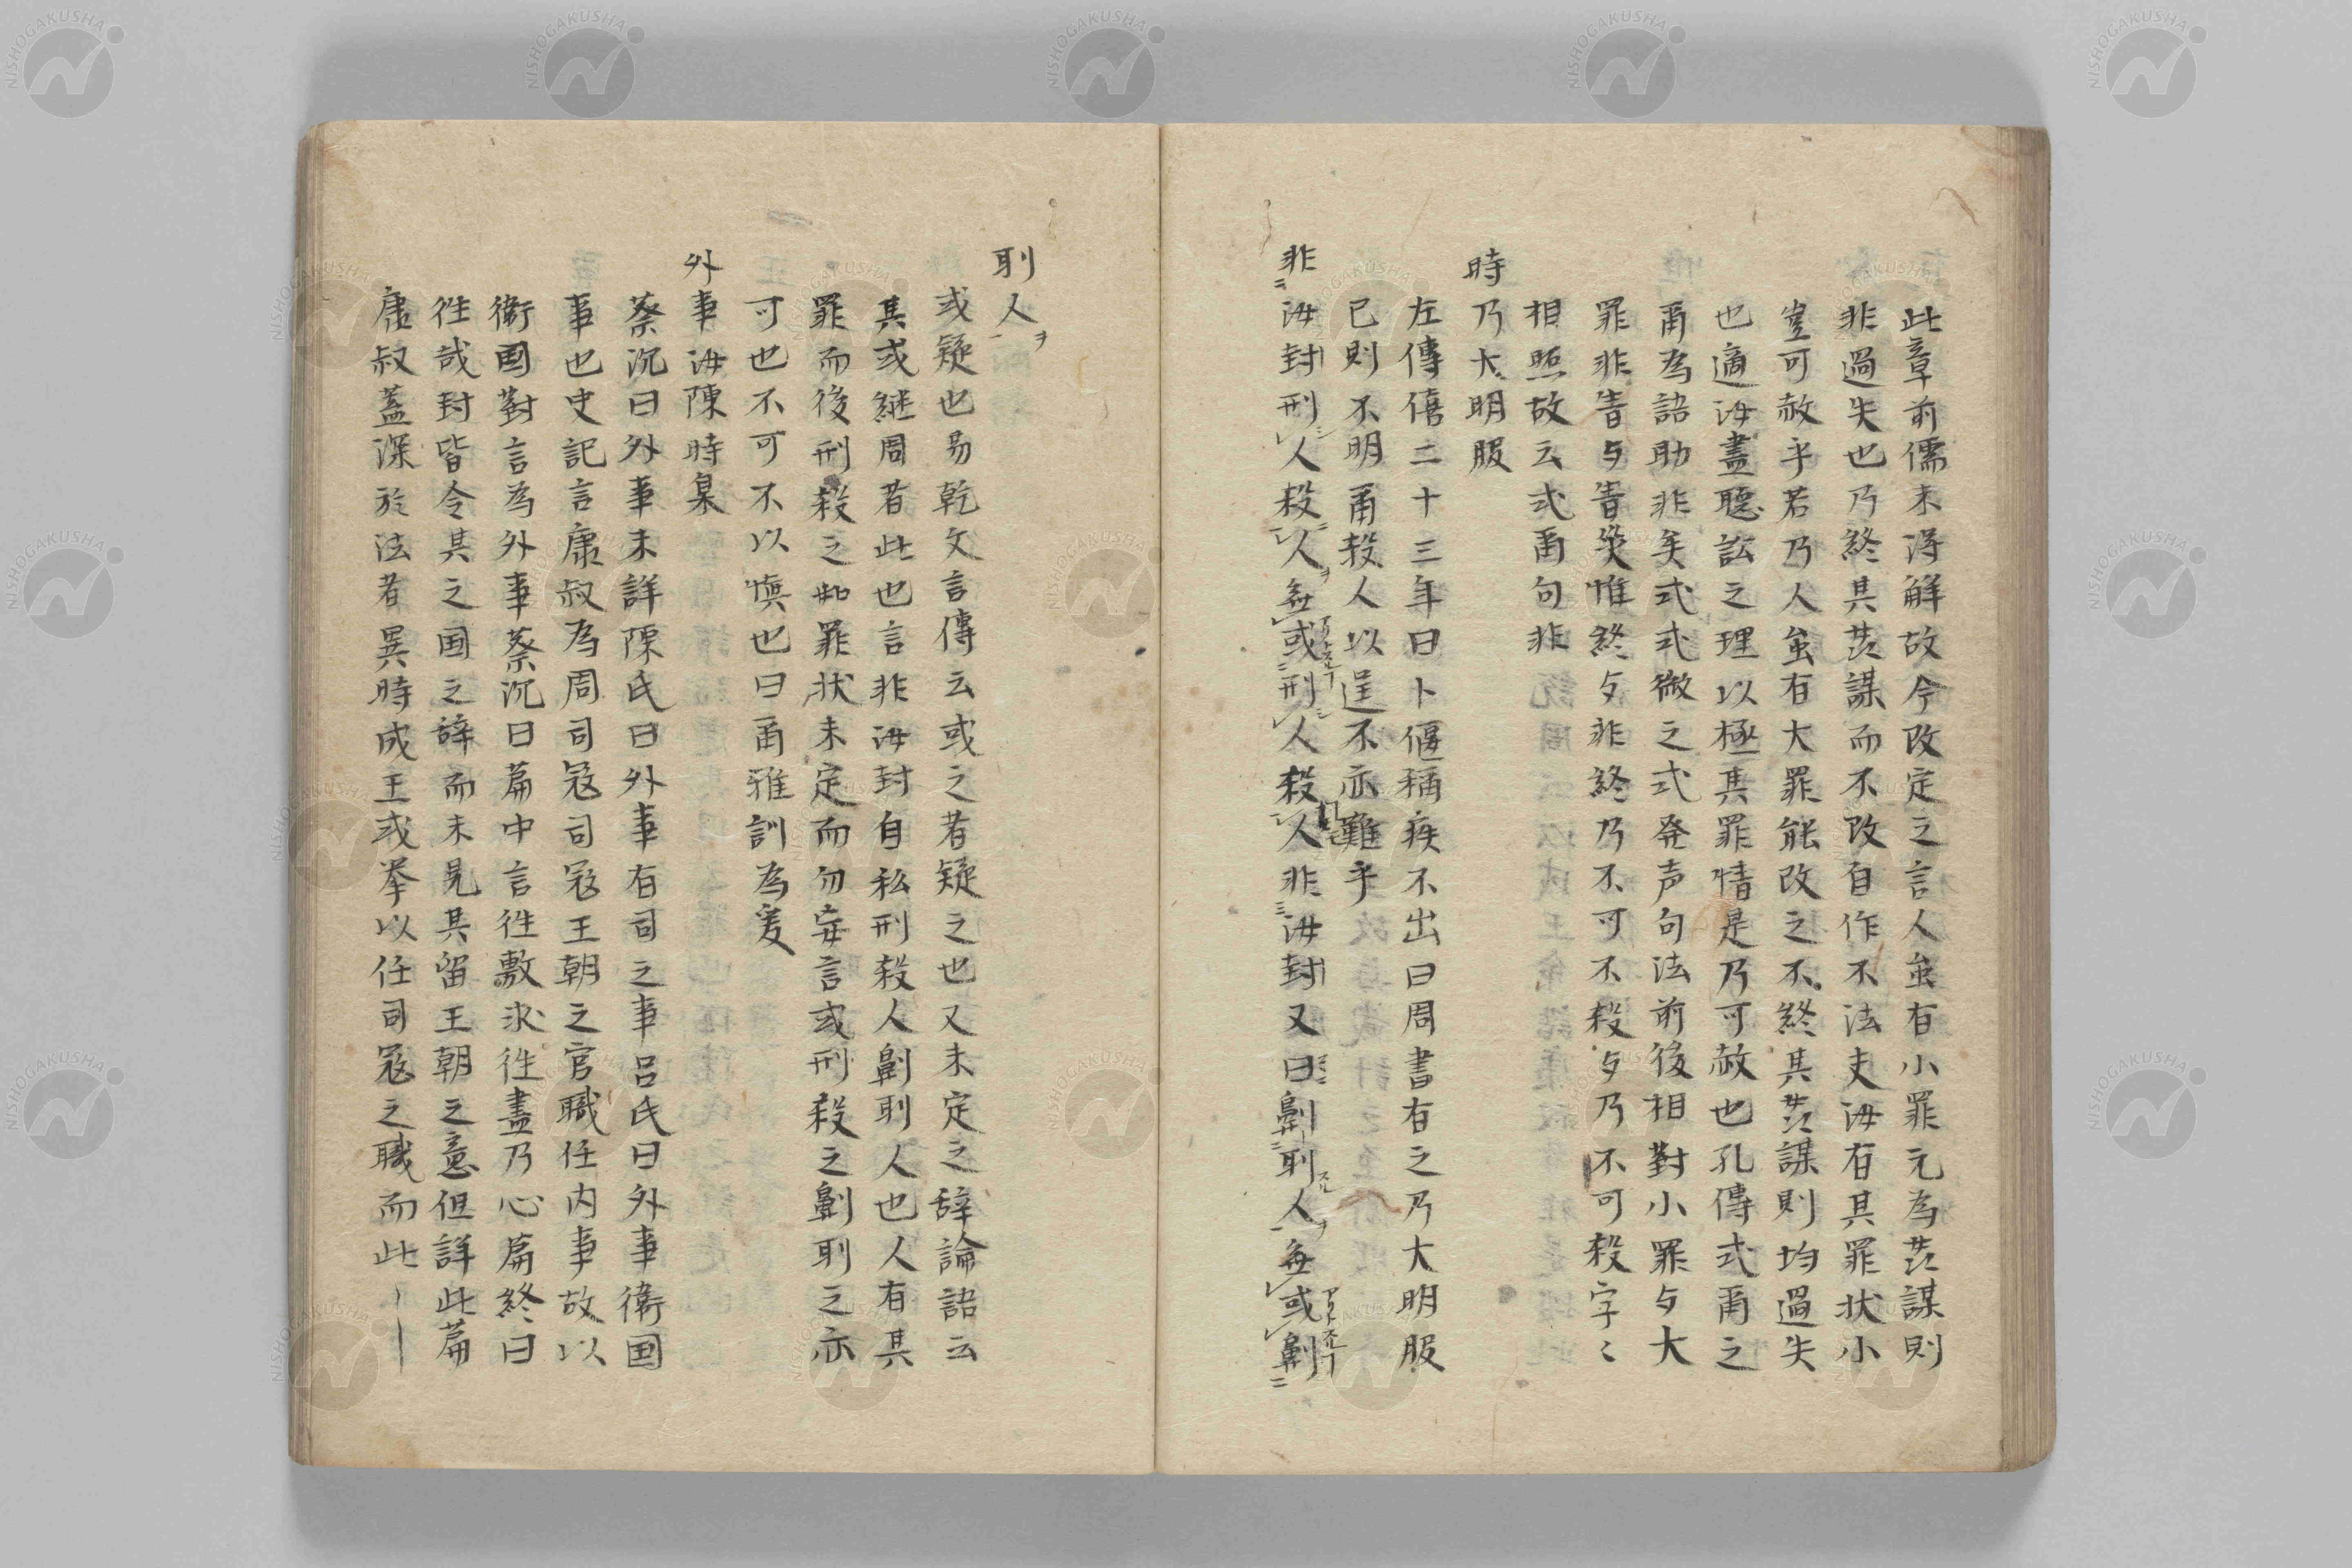 此章前儒未得解故今改定之言人虽有小罪元為茲謀則
非過失也乃終其茲謀而不改自作不法夫汝有其罪状小
豈可赦乎若乃人虽有大罪能改之不終其茲謀則均過失
也適汝盡聴訟之理以極其罪情是乃可赦也孔傳式甬之
甬為語助非矣式式微之式発声句法前後相對小罪与大
罪非眚与眚災惟終与非終乃不可不殺与乃不可殺字〻
相照故云式甬句非
時乃大明服
左傳僖二十三年曰卜偃稱疾不出曰周書有之乃大明服
己則不明甬殺人以逞不亦難乎
非汝封刑人殺人無或刑人殺人非汝封又曰劓刵人無或劓
刵人
或疑也易乾文言傳云或之者疑之也又未定之辞論語云
其或継周者此也言非汝封自私刑殺人劓刵人也人有其
罪而後刑殺之如罪状未定而勿妄言或刑殺之劓刵之亦
可也不可不以慎也曰甬雅訓為爰
外事汝陳時臬
蔡沉曰外事未詳陳氏曰外事有司之事呂氏曰外事衞国
事也史記言康叔為周司冦司冦王朝之官職任内事故以
衞国對言為外事蔡沉曰篇中言徃敷求徃盡乃心篇終曰
徃哉封皆令其之国之辞而未見其留王朝之意但詳此篇
康叔蓋深於法者異時成王或挙以任司冦之職而此——